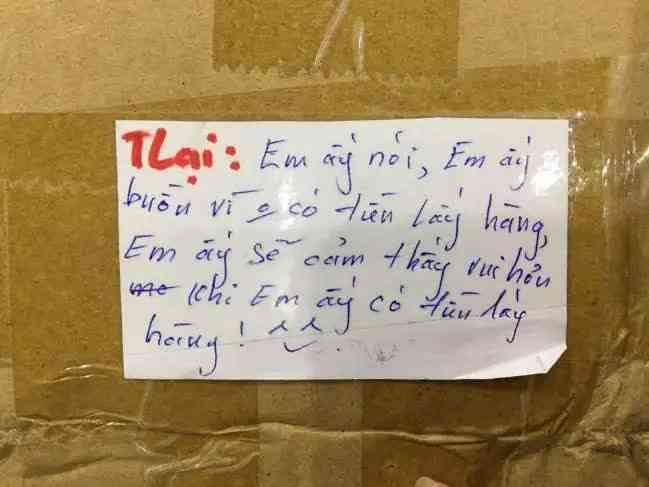 TLại: Em ấy nói, Em ấy
buồn vì o có tiền lấy hàng,
Em ấy sẽ cảm thấy vui hơn
khi Em ấy có tiền lấy
hàng! ^_^.